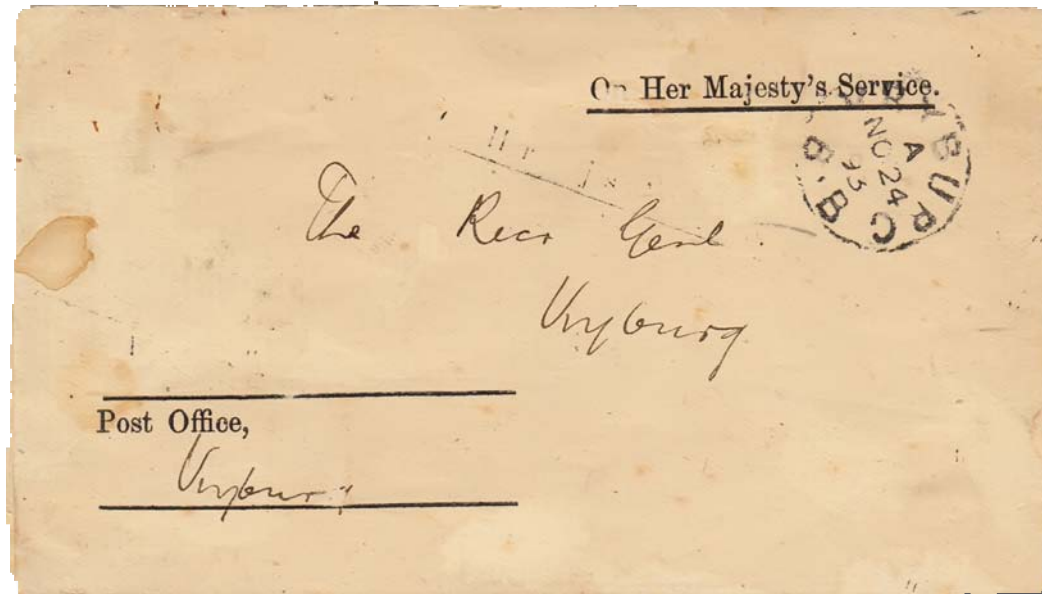 On Her Majesty's Service.
VRYBURG
B.B
A
NO 24
93
The Recr Genl.
Vryburg
Post Office,
Vryburg